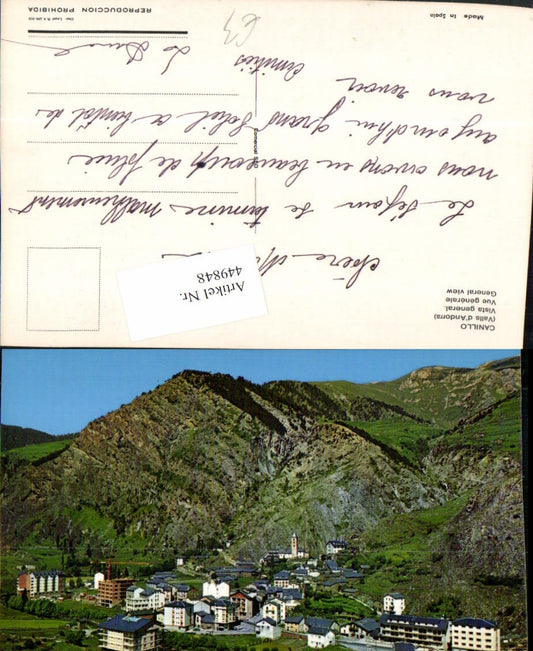 CANILLO
(Valls d'Andorra)
Vista general.
Vue générale
General view
Chère
Le séjour se termine malheureusement
nous avons eu beaucoup de pluie
aujourd'hui grand soleil a bientôt de
vous revoir
amitiés
Artikel Nr.
449848
Made in Spain
REPRODUCCION PROHIBIDA